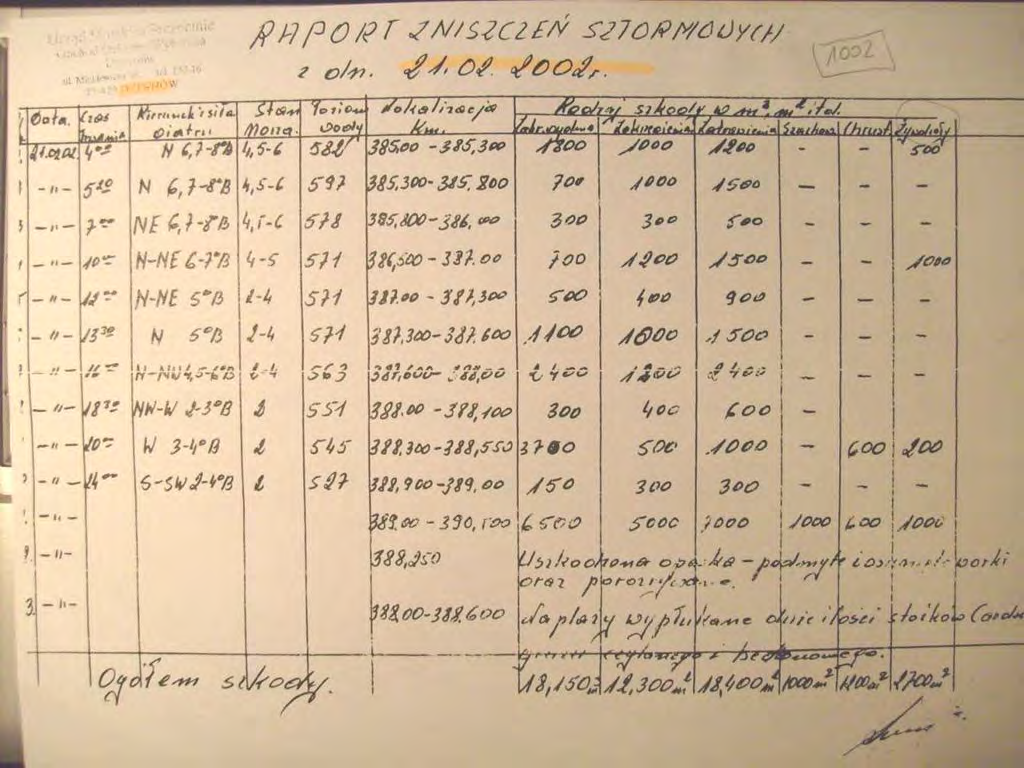 Urząd Morski w Szczecinie
RAPORT ZNISZCZEŃ SZTORMOWYCH
z dn. 21.02.2002r.
1002
Data. Czas trwania Kierunek i siła wiatru Stan morza. Poziom wody Lokalizacja km. Rodzaj szkody w m³, m² itd.
Zabr. wydma Zakrzewienia Zatrawienia Chrust Żywołoty
21.02.02 4⁰⁰ N 6,7-8°B 4,5-6 582 385.00 - 385,300 1800 1000 1200 - - 500
-"- 5²⁰ N 6,7-8°B 4,5-6 597 385.300-385.800 700 1000 1500 - - -
-"- 7⁰⁰ NE 6,7-8°B 4,5-6 578 385,800-386,00 300 300 500 - - -
-"- 10⁰⁰ N-NE 6-7°B 4-5 571 386,500-387.00 700 1200 1500 - - 1000
-"- 12⁰⁰ N-NE 5°B 2-4 571 387.00-387,300 500 400 900 - - -
-"- 13³⁰ N 5°B 2-4 571 387,300-387.600 1100 1000 1500 - - -
-"- 16⁰⁰ N-NW 4,5-6°B 2-4 563 387,600-388,00 2400 1200 2400 - - -
-"- 18³⁰ NW-W 2-3°B 2 551 388.00-388,100 300 400 600 -
-"- 20⁰⁰ W 3-4°B 2 545 388.300-388,550 3700 500 1000 - 600 200
-"- 24⁰⁰ S-SW 2-4°B 2 527 388,900-389.00 150 300 300 - - -
-"- 389.00-390,500 6500 5000 7000 1000 600 1000
-"- 388,250 Uszkodzona opaska - podmyte worki
oraz
-"- 388.00-388.600 Na plaży wypłukane duże ilości
gruzu ceglanego i betonowego.
Ogółem szkody. 18,150m³ 12,300m² 18,400m² 1000m² 1200m² 2700m²